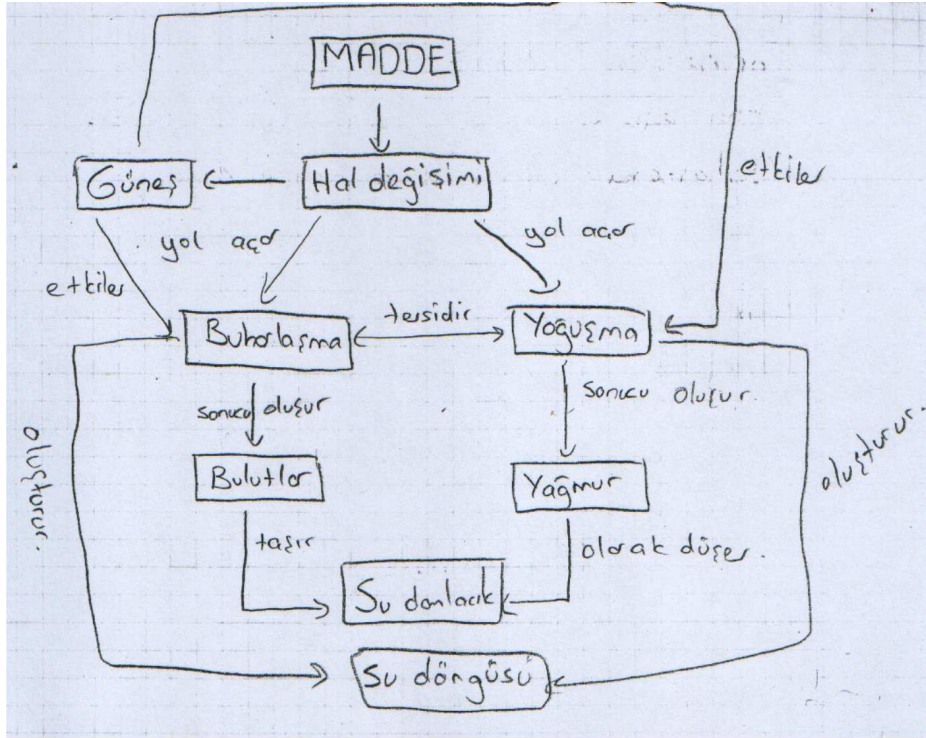 MADDE
Güneş
Hal değişimi
etkiler
yol açar
yol açar
etkiler
Buharlaşma
tersidir
Yoğuşma
sonucu oluşur
sonucu oluşur.
oluşturur.
oluşturur.
Bulutlar
Yağmur
taşır
olarak düşer.
Su damlacık
Su döngüsü